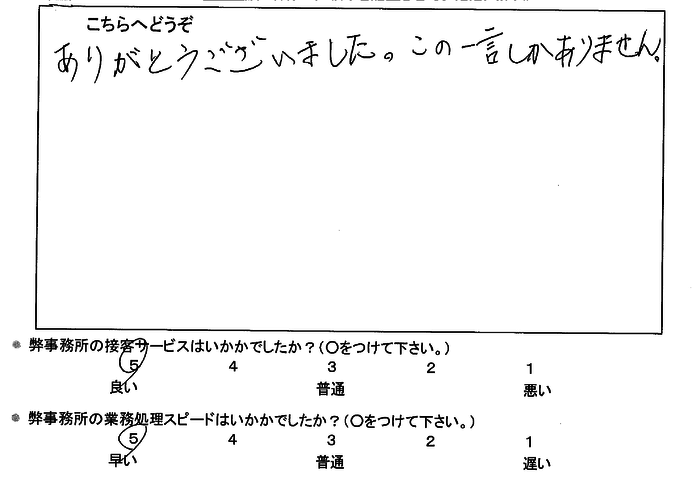 こちらへどうぞ
ありがとうございました。この一言しかありません。
弊事務所の接客サービスはいかかでしたか？(〇をつけて下さい。)
5 4 3 2 1
良い 普通 悪い
弊事務所の業務処理スピードはいかかでしたか？(〇をつけて下さい。)
5 4 3 2 1
早い 普通 遅い